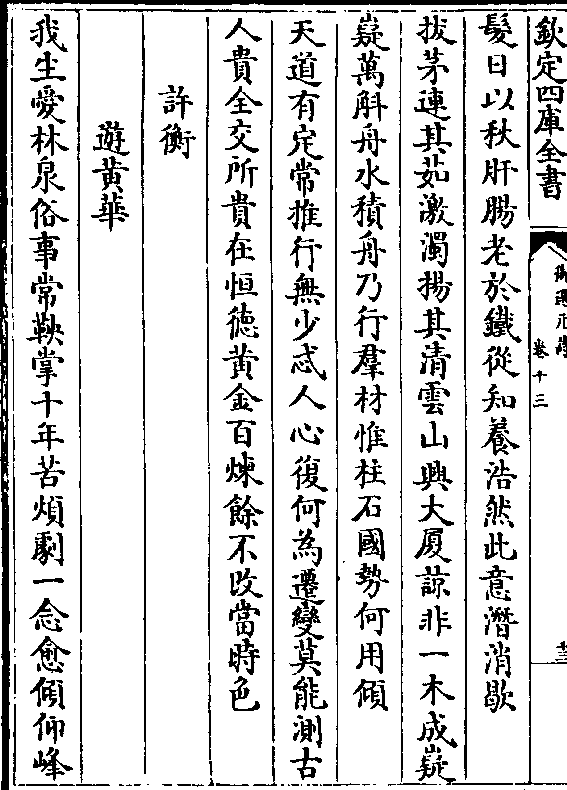 欽定四庫全書
御選元詩
卷十三
髮日以秋肝腸老於鐵從知養浩然此意潛消歇
拔茅連其茹激濁揚其清雲山興大厦諒非一木成嶷
嶷萬斛舟水積舟乃行羣材惟柱石國勢何用傾
天道有定常推行無少忒人心復何為遷變莫能測古
人貴全交所貴在恒德黄金百煉餘不改當時色
許衡
遊黄華
我生愛林泉俗事常鞅掌十年苦煩劇一念愈傾仰峰